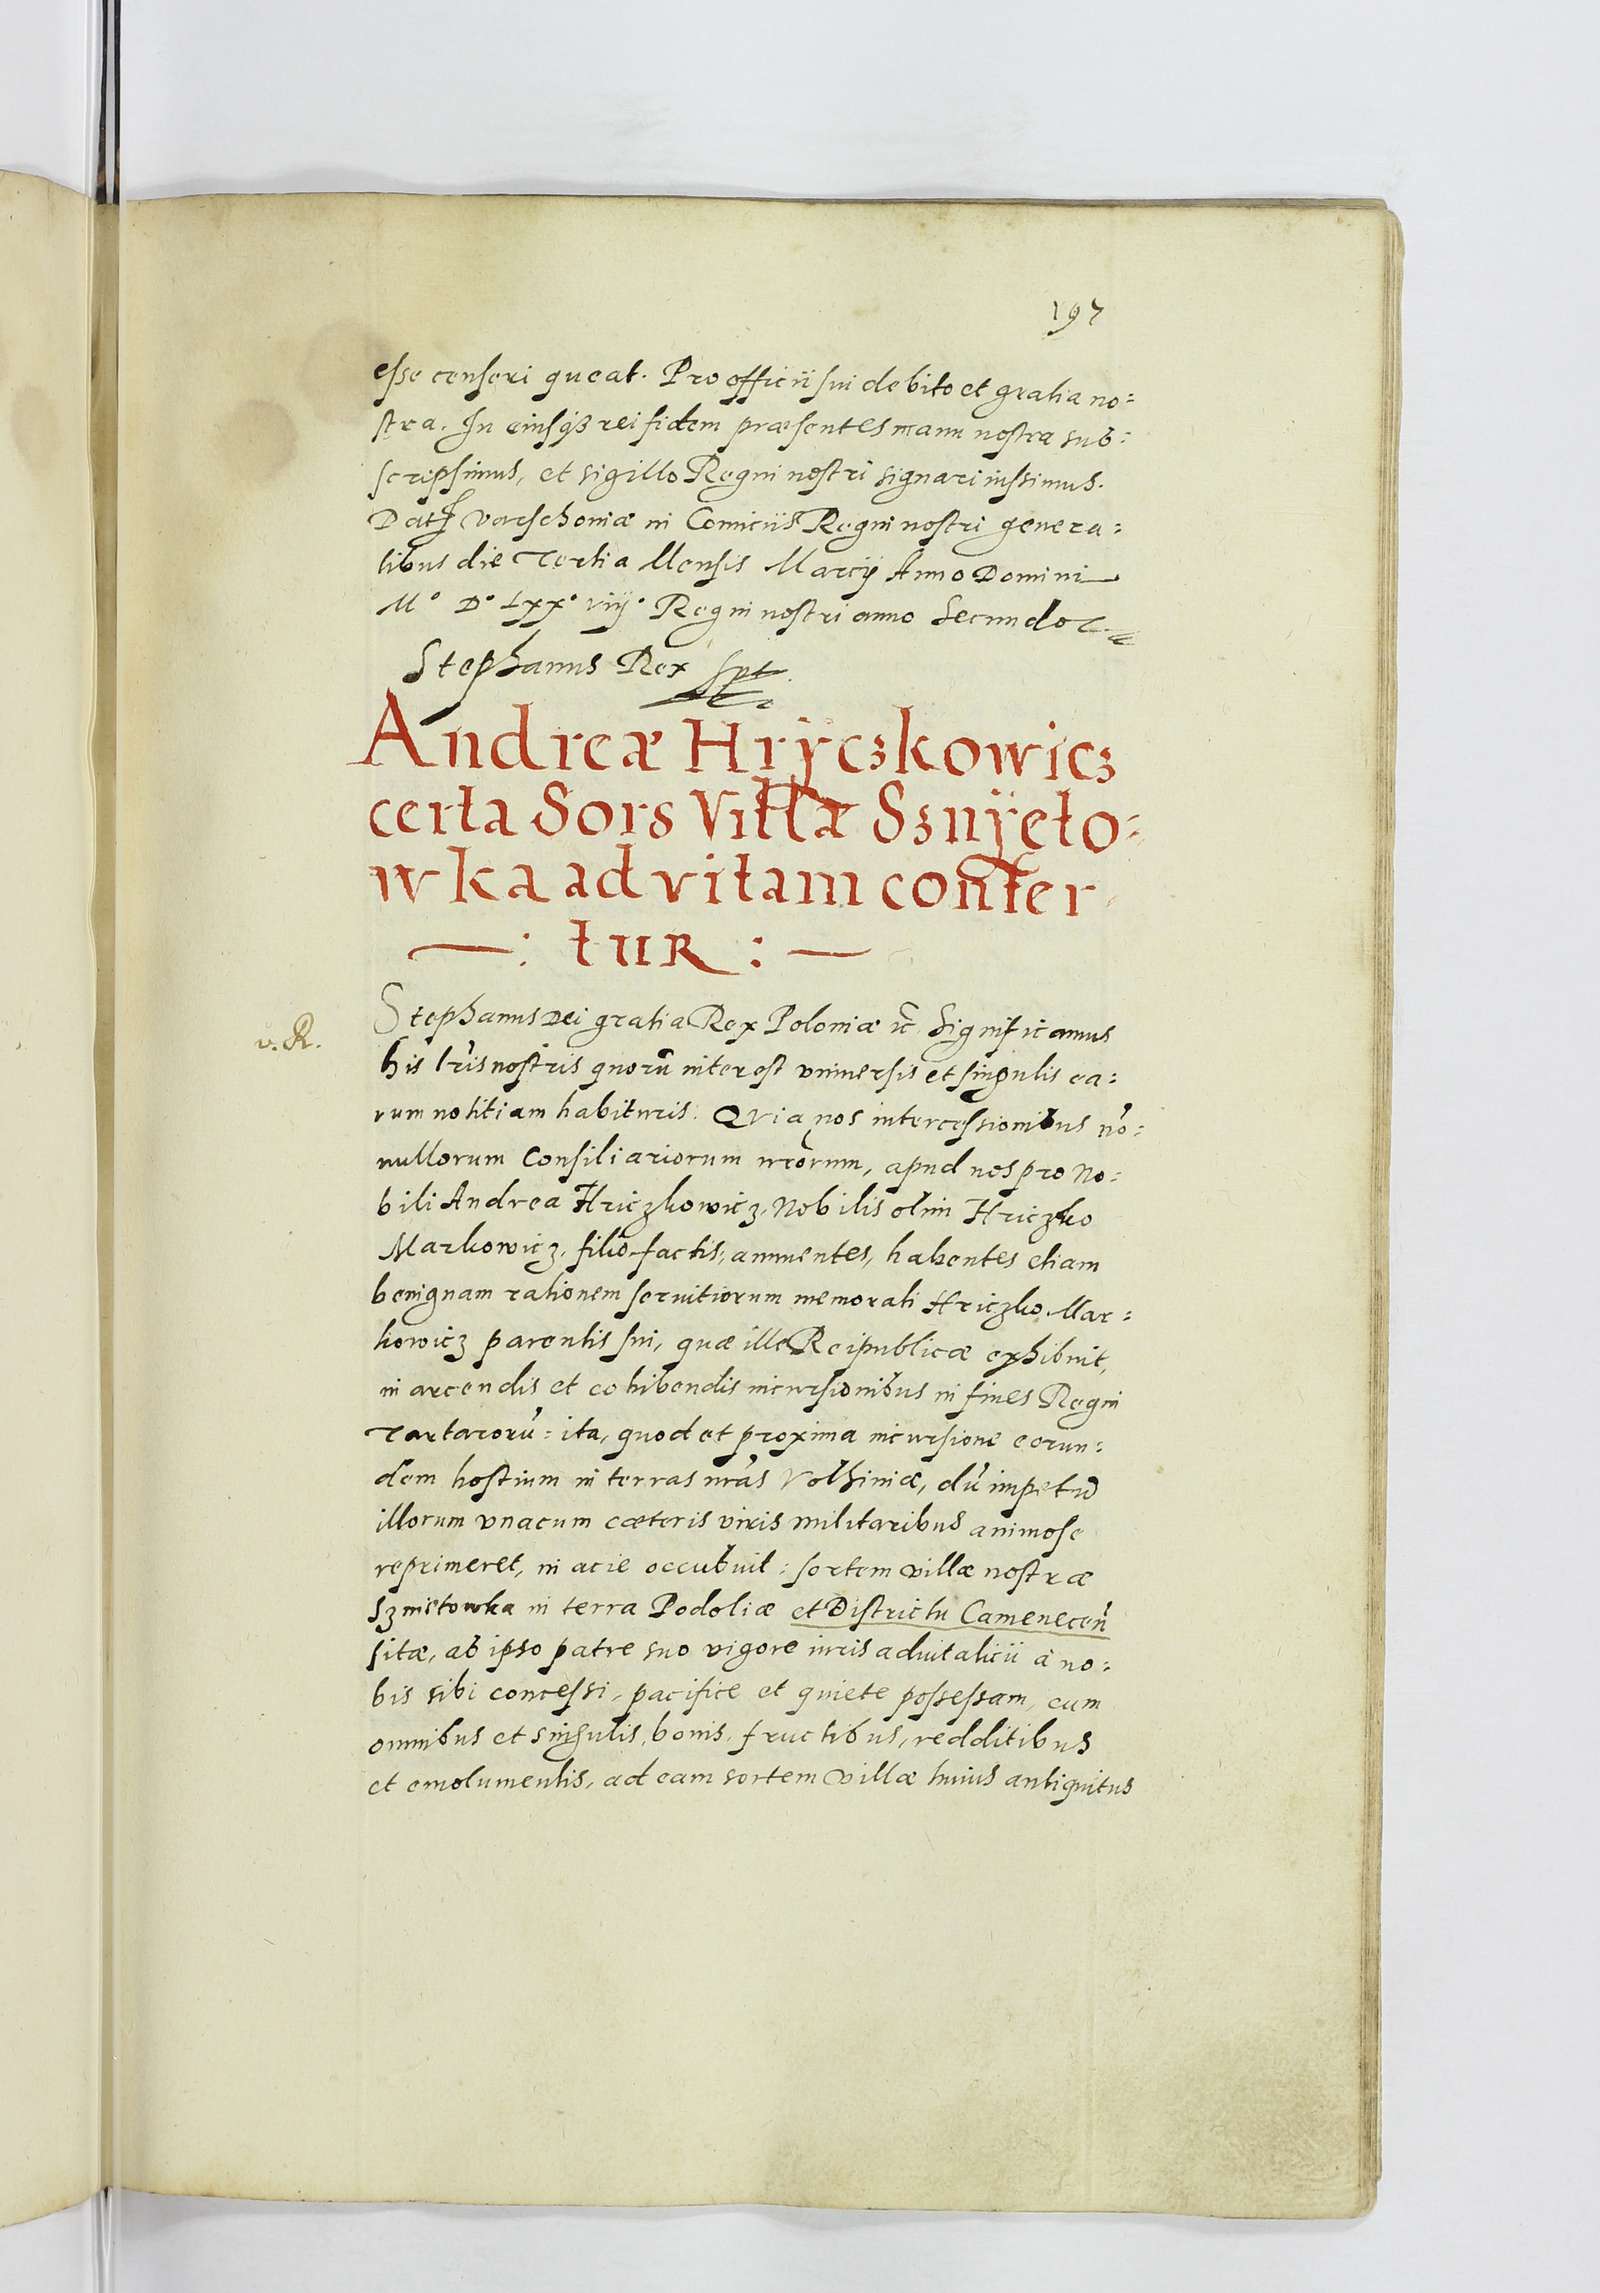 197
esse censeri queat. Pro officii sui debito et gratia no=
stra. In eiusq3 rei fidem præsentes manu nostra sub=
scripsimus, et sigillo Regni nostri signari iussimus.
Dat Varschoniæ in Comiciis Regni nostri genera=
libus die Tertia Mensis Marcÿ Anno Domini
M° D° LXX° viÿ° Regni nostri anno Secundo
Stephanus Rex spt
Andreæ Hrÿczkowicz
certa Sors Villæ Sznÿeto=
wka ad vitam confer
—: tuR :—
Stephanus Dei gratia Rex Poloniæ &c̃ Significamus
v. R.
his l̃ris nostris quorũ interest vniuersis et singulis ea=
rum notitiam habituris. Quia nos intercessionibus nõ=
nullorum Consiliariorum nr̃orum, apud nos pro No=
bili Andrea Hriczkowicz, Nobilis olim Hriczko
Markowicz, filio factis, annuentes, habentes etiam
benignam rationem seruitiorum memorati Hriczko Mar=
kowicz parentis sui, quæ ille Reipublicæ exhibuit,
in arcendis et cohibendis incursionibus in fines Regni
Tartarorũ: ita, quod et proxima incursione eorun=
dem hostium in terras nr̃as Volhiniæ, dũ impetũ
illorum vnacum cæteris viris militaribus animose
reprimeret, in acie occubuit: sortem villæ nostræ
Sznietowka in terra Podoliæ et Districtu Camenecen̄
sitæ, ab ipso patre suo vigore iuris aduitalicii à no=
bis sibi concessi, pacifice et quiete possessam, cum
omnibus et singulis, bonis, fructibus, redditibus
et emolumentis, ad eam sortem villæ huius antiquitus